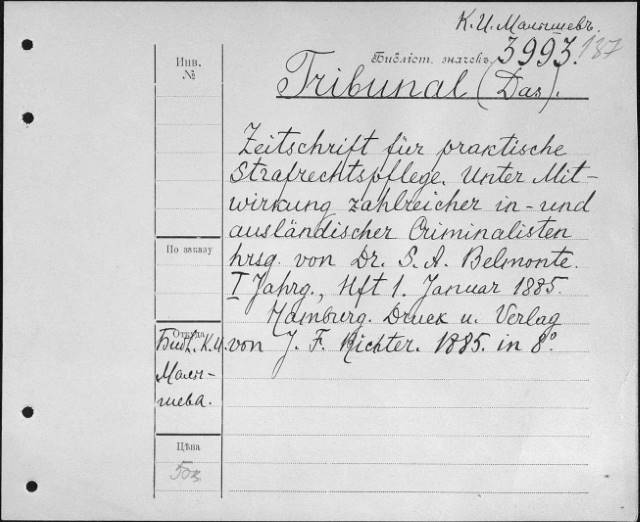 К. И. Малышевъ.
Инв. №
Библіот. значекъ 3993. 187
Tribunal (Das).
Zeitschrift für praktische
Strafrechtspflege. Unter Mit-
wirkung zahlreicher in- und
ausländischer Criminalisten
По заказу
hrsg. von Dr. S. A. Belmonte.
I Jahrg., Hft 1. Januar 1885.
Hamburg. Druck u. Verlag
Откуда
Библ. К. И. von J. F. Richter. 1885. in 8°
Малы-
шева.
Цѣна